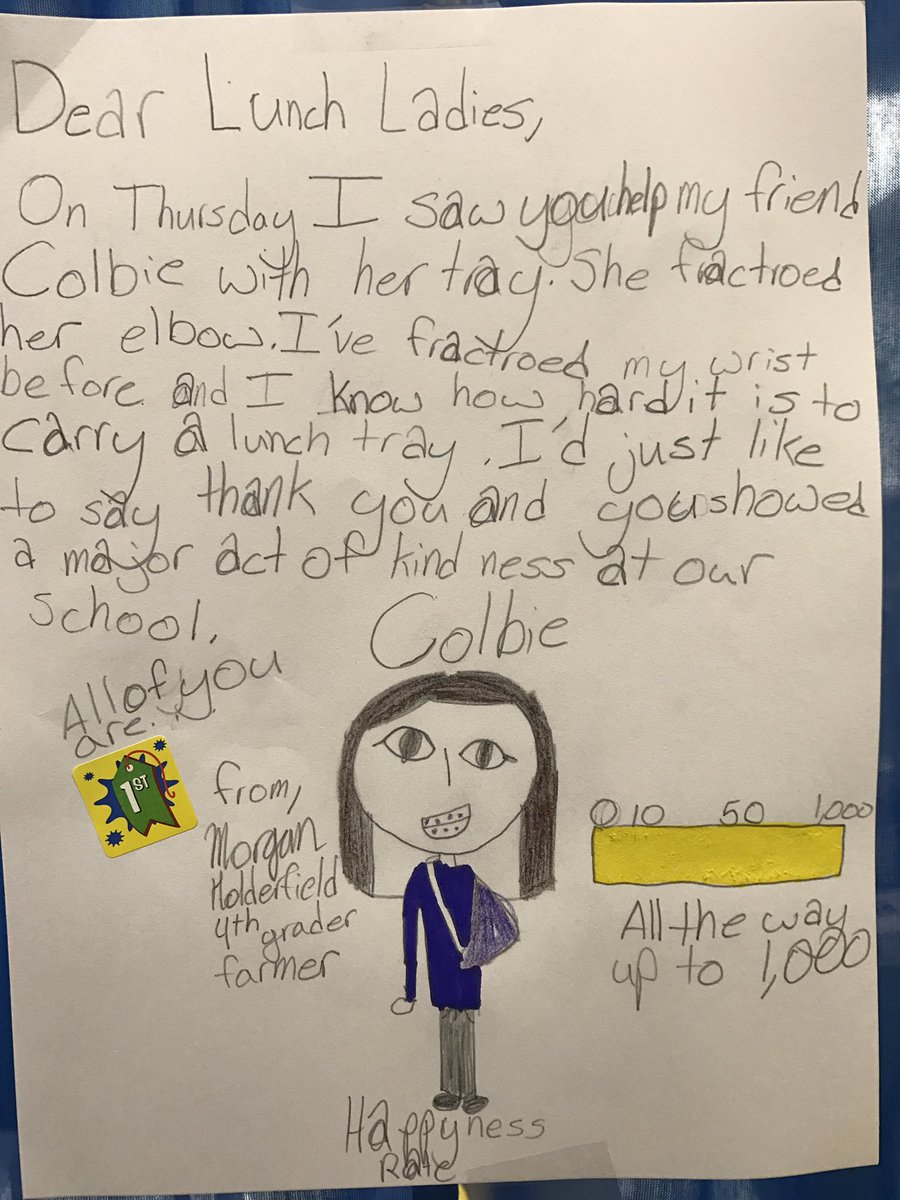 Dear Lunch Ladies,
On Thursday I saw you help my friend
Colbie with her tray. She fractroed
her elbow. I've fractroed my wrist
before and I know how hard it is to
carry a lunch tray. I'd just like
to say thank you and you showed
a major act of kind ness at our
school.
Colbie
All of you
are...
1ST
from,
Morgan
Holderfield
4th grader
farmer
0 10 50 1,000
All the way
up to 1,000
Happyness
Rate